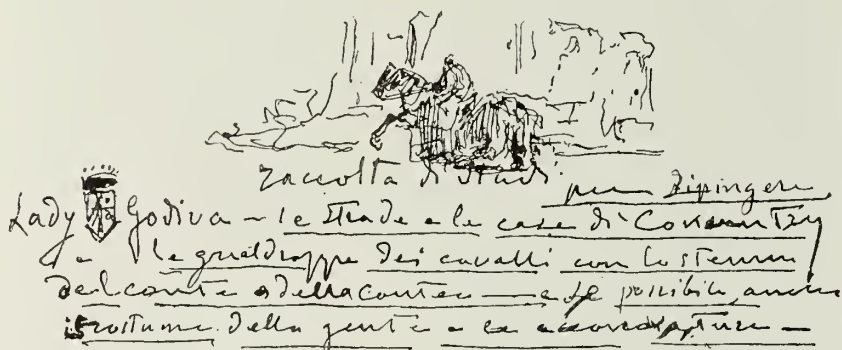 raccolta di studi per dipingere
Lady Godiva - le strade e le case di Conventry
e le gualdrappe dei cavalli con lo stemma
del conte e della contea — e se possibile, anche
il costume della gente e le